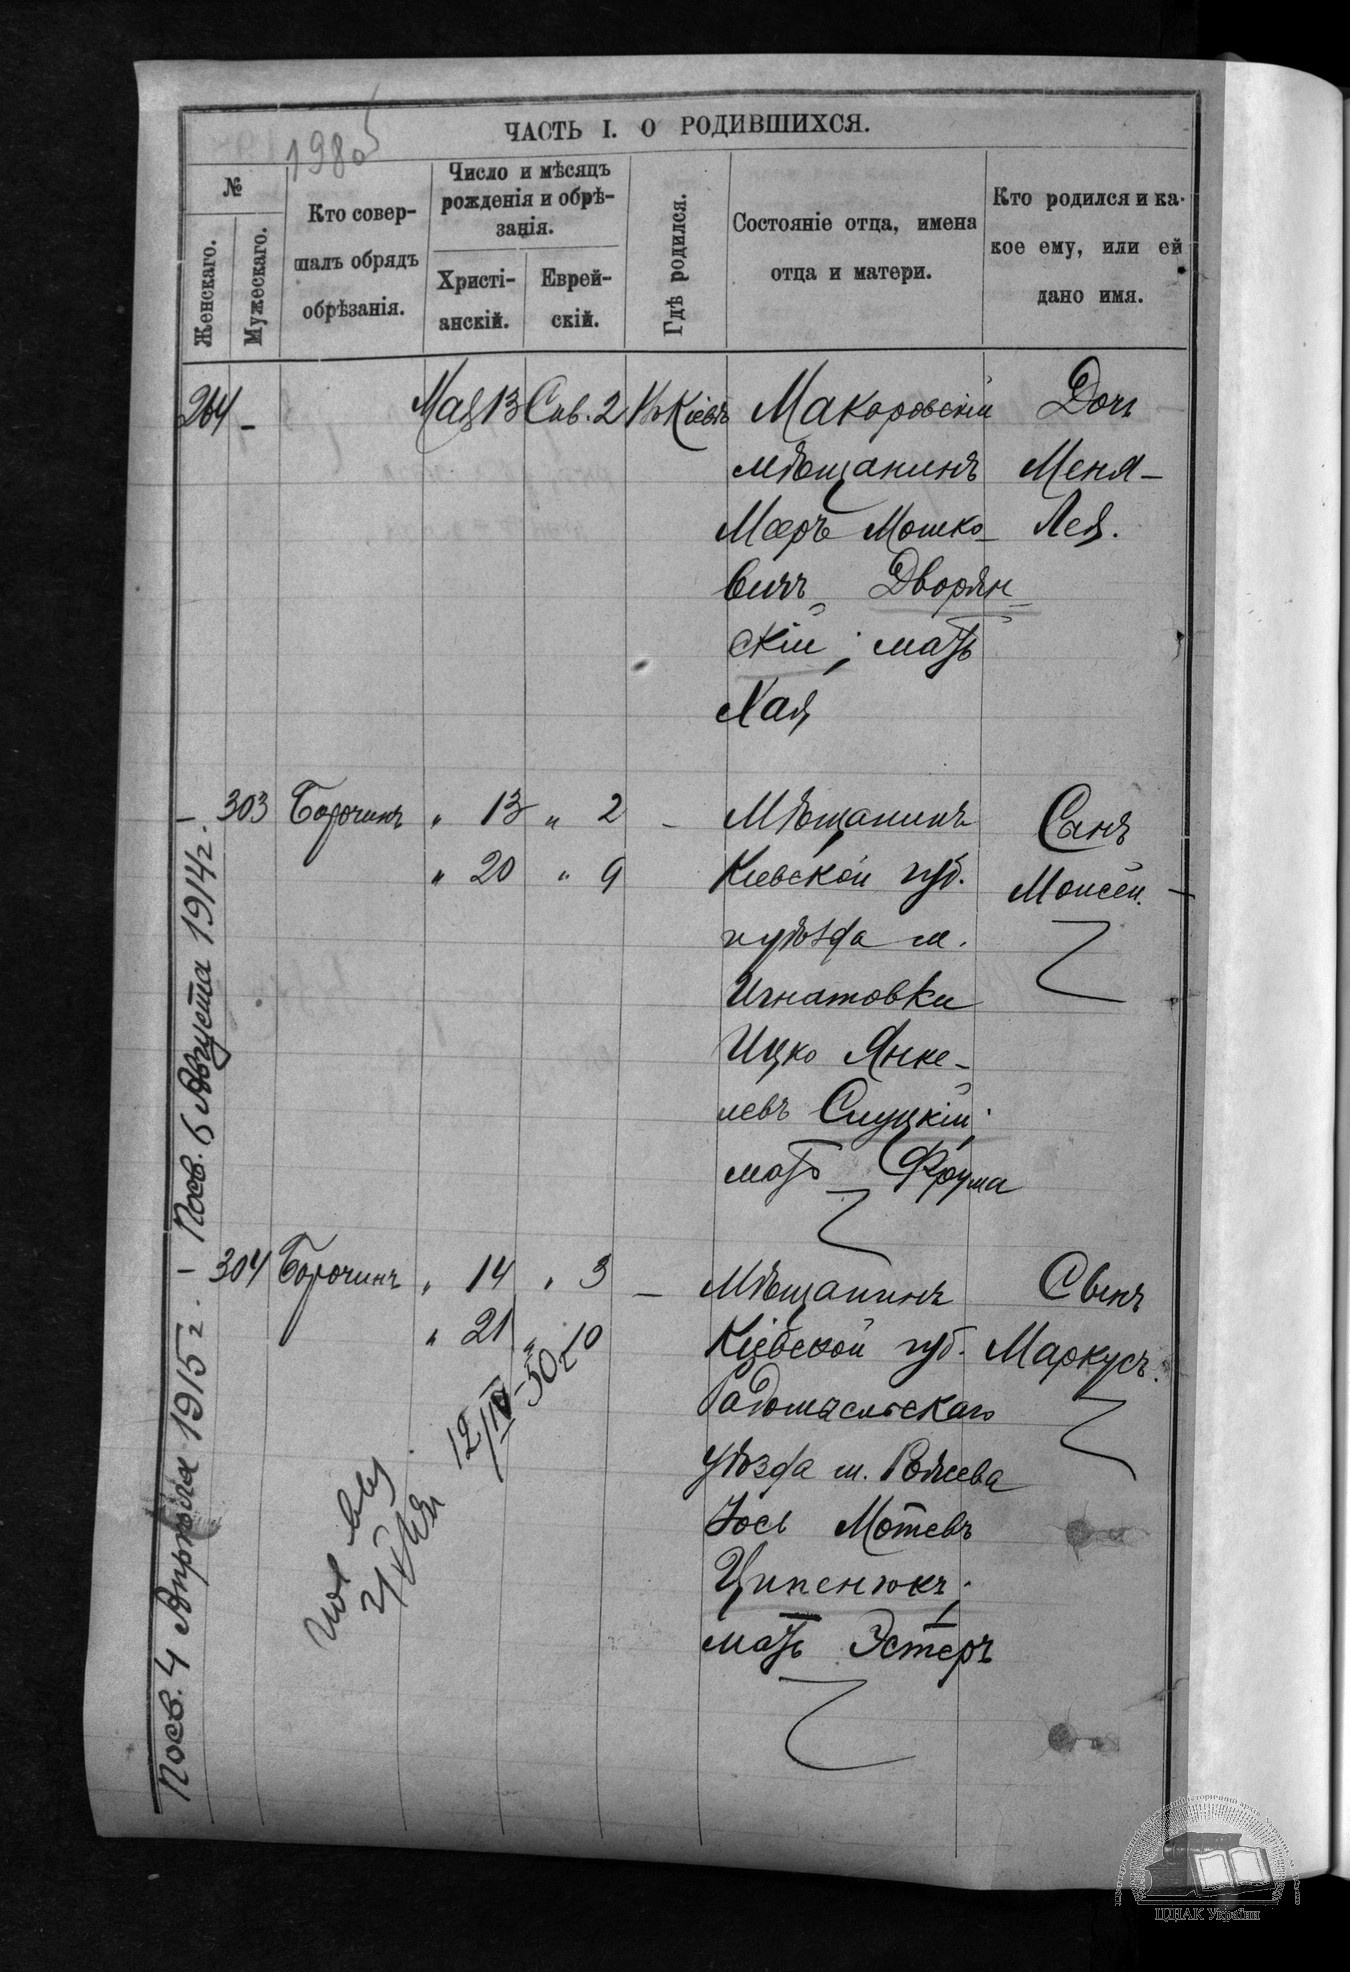 1980
ЧАСТЬ I. О РОДИВШИХСЯ.
№
Женскаго.
Мужескаго.
Кто совер-
шалъ обрядъ
обрѣзанія.
Число и мѣсяцъ
рожденія и обрѣ-
занія.
Христі-
анскій.
Еврей-
скій.
Гдѣ родился.
Состояніе отца, имена
отца и матери.
Кто родился и ка-
кое ему, или ей
дано имя.
264 - Мая 13 Сив. 2 Въ Кіевѣ Макаровскій Дочь
мѣщанинъ Меня-
Меръ Мошко- Лея.
вичъ Дворян-
скій; мать
Хая
- 303 Борочинъ " 13 " 2 - Мѣщанинъ Сынъ
" 20 " 9 Кіевской губ. Моисей.
и уѣзда м.
Игнатовки
Ицко Янке-
левъ Слуцкій;
мать Фрума
- 304 Борочинъ " 14 " 3 - Мѣщанинъ Сынъ
" 21 " 10 Кіевской губ. Маркусъ.
Радомысльскаго
уѣзда м.
Іось Мотевъ
Ципенюкъ;
мать Эстеръ
12/IV-50г
Посв. 4 Апрѣля 1915 г. - Посв. 6 Августа 1914 г.
ЦДІАК України